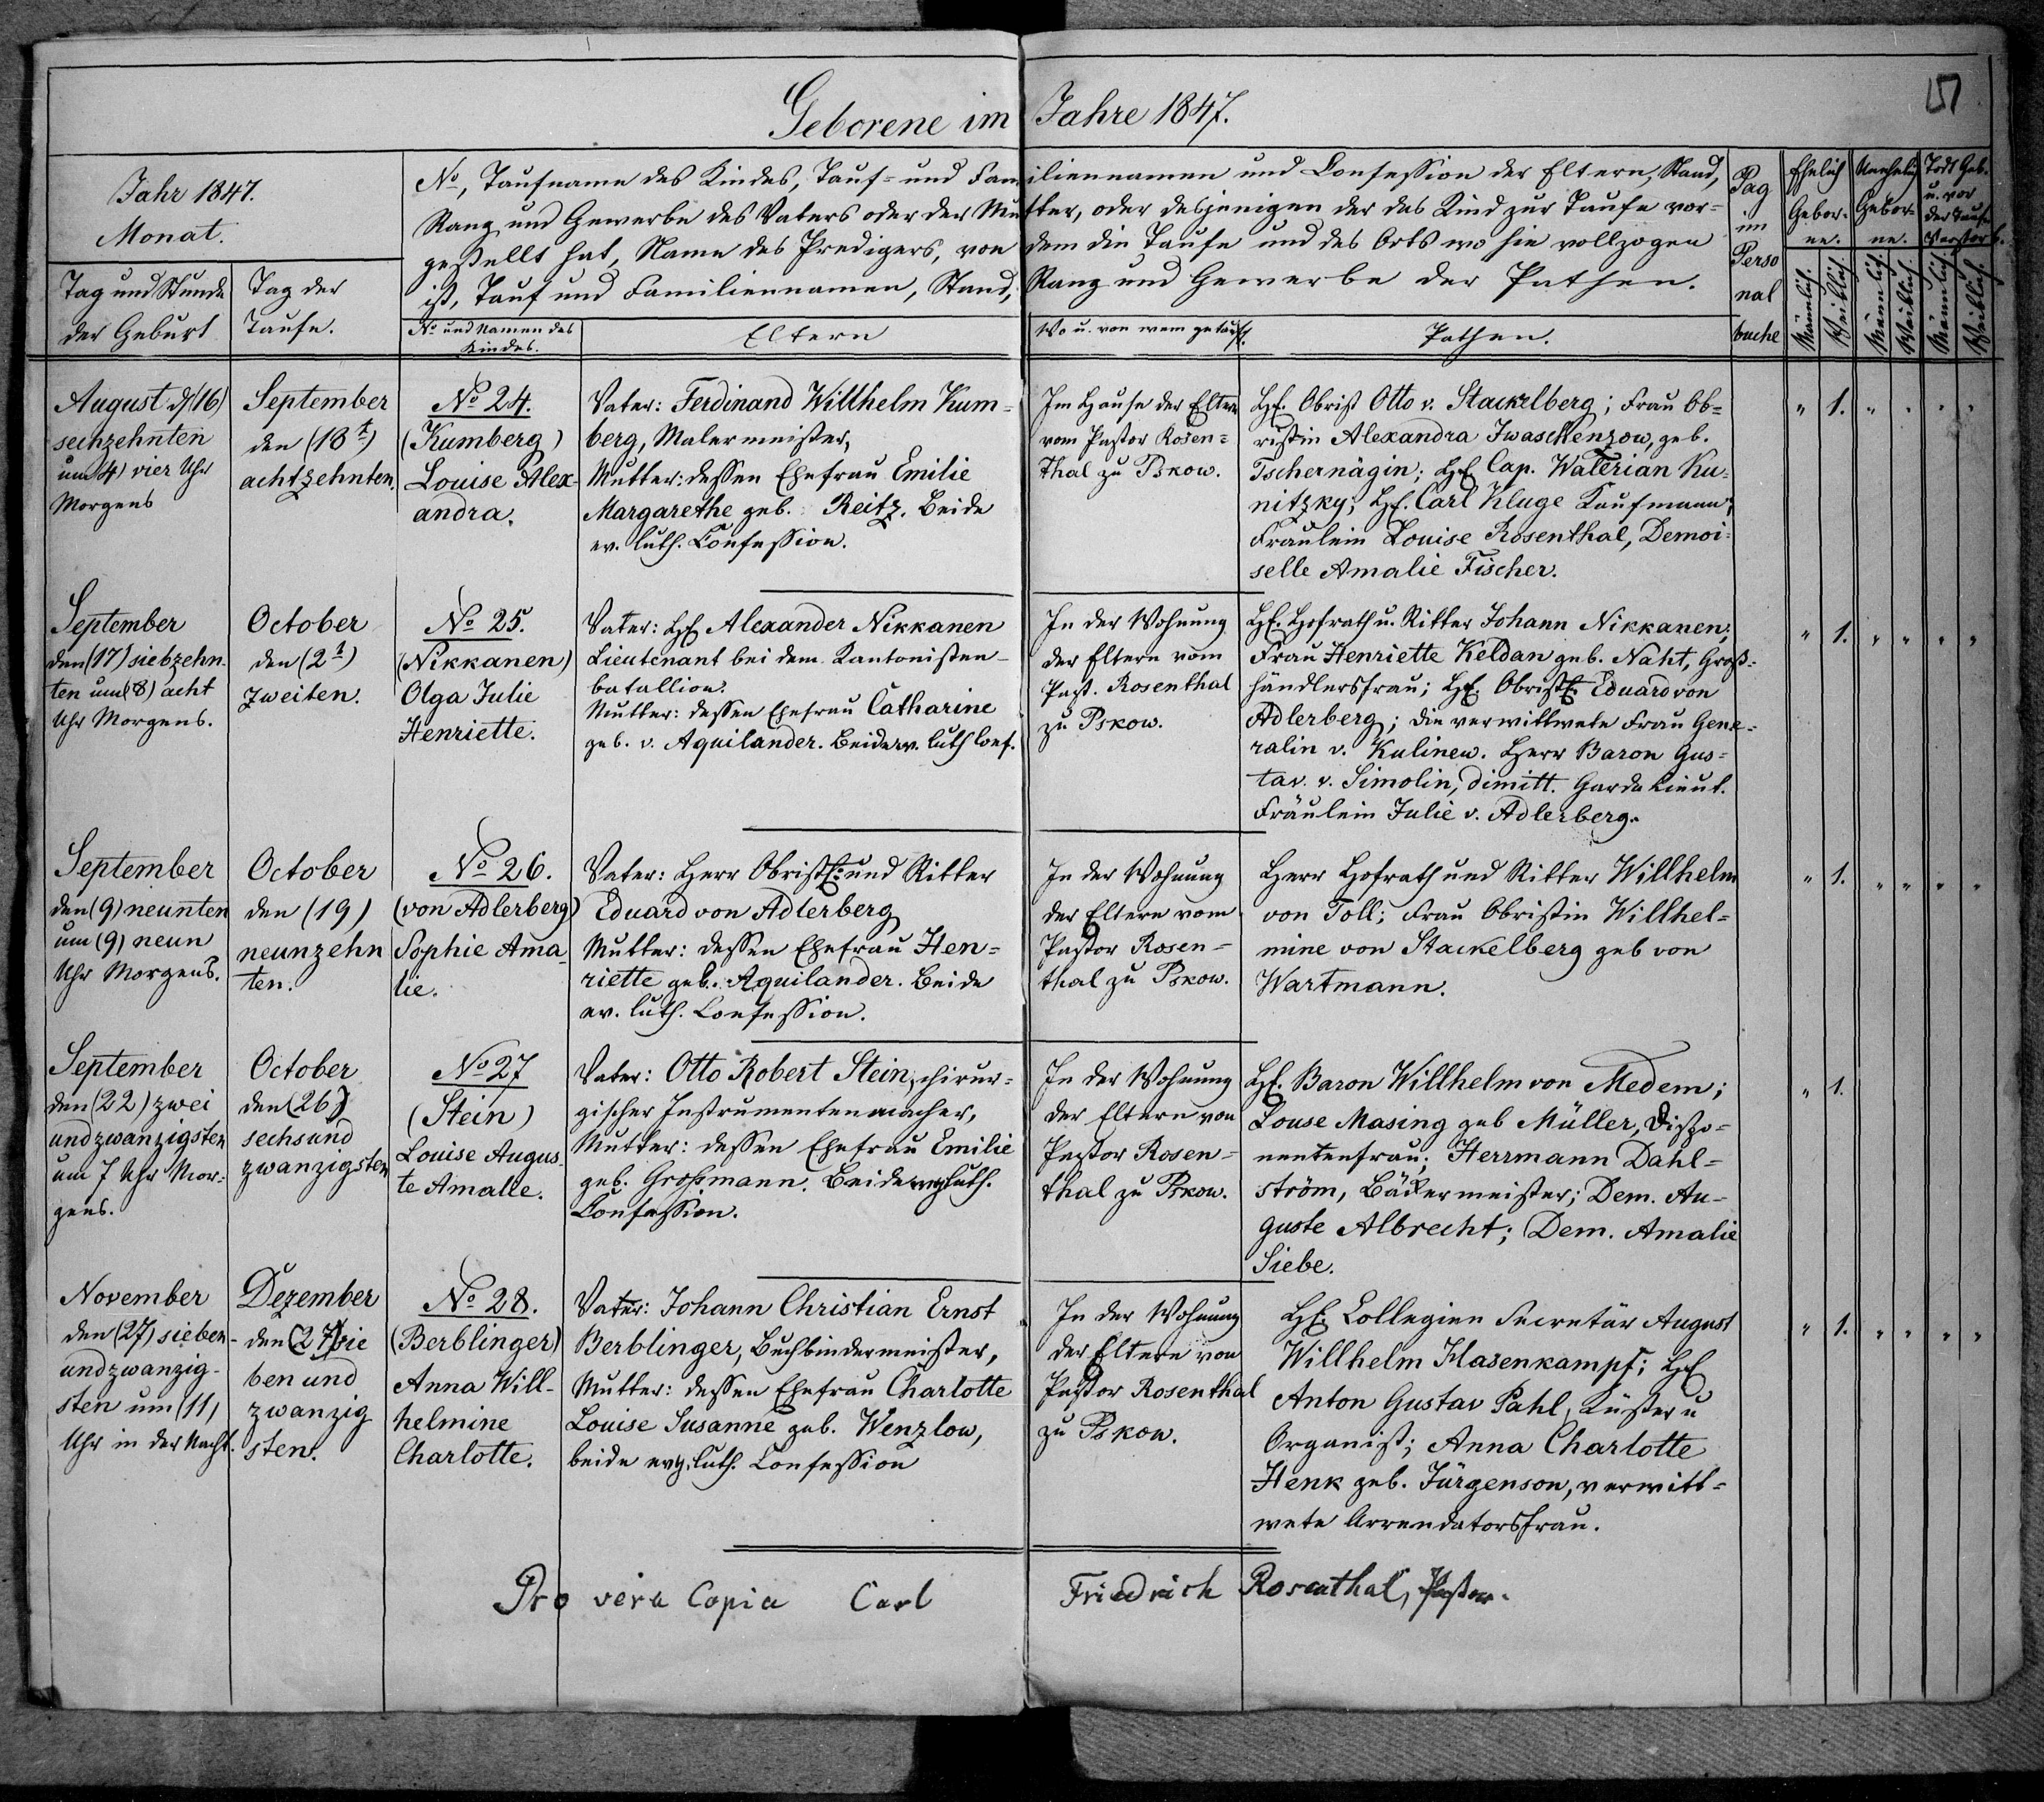 Geborene im Jahre 1847.
Jahr 1847.
Monat.
Tag und Stunde
der Geburt
Tag der
Taufe.
No, Taufname des Kindes, Tauf- und Familiennamen und Confession der Eltern, Stand,
Rang und Gewerbe des Vaters oder der Mutter, oder desjenigen der das Kind zur Taufe vor-
gestellt hat, Name des Predigers, von dem die Taufe und des Orts wo sie vollzogen
ist, Tauf und Familiennamen, Stand, Rang und Gewerbe der Pathen.
No und Namen des
Kindes.
Eltern
Wo u. von wem getauft.
Pathen.
Pag
im
Perso
nal
buche
Ehelich
Gebor-
ne.
Unehelich
Gebor-
ne.
Todt Geb.
u. vor
der Taufe
Verstorb.
Männlich.
Weiblich.
Männlich.
Weiblich.
Männlich.
Weiblich.
August d (16)
sechzehnten
um (4) vier Uhr
Morgens
September
den (18t)
achtzehnten.
No 24.
(Kumberg)
Louise Alex-
andra.
Vater: Ferdinand Willhelm Kum-
berg, Malermeister,
Mutter: dessen Ehefrau Emilie
Margarethe geb. Reitz. Beide
ev. luth. Confession.
Im Hause der Eltern
vom Pastor Rosen-
thal zu Pskow.
H. Obrist Otto v. Stackelberg; Frau Ob-
ristin Alexandra Iwaschenzow, geb.
Tschernägin; H. Cap. Walerian Ku-
nitzky; H. Carl Kluge Kaufmann;
Fraulein Louise Rosenthal, Demoi-
selle Amalie Fischer.
" 1. " " " "
September
den (17) siebzehn-
ten um (8) acht
Uhr Morgens.
October
den (2t)
zweiten.
No 25.
(Nikkanen)
Olga Julie
Henriette.
Vater: H. Alexander Nikkanen
Lieutenant bei dem Kantonisten-
batallion.
Mutter: dessen Ehefrau Catharine
geb. v. Aquilander. Beide ev. luth Conf.
In der Wohnung
der Eltern vom
Past. Rosenthal
zu Pskow.
H. Hofrath u. Ritter Johann Nikkanen;
Frau Henriette Keldan geb. Naht, Groß-
händlersfrau; H. Obristl. Eduard von
Adlerberg; die verwittwete Frau Gene-
ralin v. Kulinew. Herr Baron Gus-
tav. v. Simolin, dimitt. Garde Lieut.
Fräulein Julie v. Adlerberg.
" 1. " " " "
September
den (9) neunten
um (9) neun
Uhr Morgens.
October
den (19)
neunzehn
ten.
No 26.
(von Adlerberg)
Sophie Ama-
lie.
Vater: Herr Obristl: und Ritter
Eduard von Adlerberg
Mutter: dessen Ehefrau Hen-
riette geb. Aquilander. Beide
ev. luth. Confession.
In der Wohnung
der Eltern vom
Pastor Rosen-
thal zu Pskow.
Herr Hofrath und Ritter Willhelm
von Toll; Frau Obristin Willhel-
mine von Stackelberg geb von
Wartmann.
" 1. " " " "
September
den (22) zwei
und zwanzigsten
um 7 Uhr Mor-
gens.
October
den (26)
sechs und
zwanzigsten
No 27
(Stein)
Louise Augus-
te Amalie.
Vater: Otto Robert Stein, chirur-
gischer Instrumentenmacher,
Mutter: dessen Ehefrau Emilie
geb. Großmann. Beide evg luth.
Confession.
In der Wohnung
der Eltern von
Pastor Rosen-
thal zu Pskow.
H. Baron Willhelm von Medem;
Louse Masing geb Müller, Dispo-
nentenfrau; Herrmann Dahl-
ström, Bäckermeister; Dem. Au-
guste Albrecht; Dem. Amalie
Siebe.
" 1.
November
den (27) sieben-
und zwanzig-
sten um (11)
Uhr in der Nacht.
Dezember
den (27) sie
ben und
zwanzig
sten.
No 28.
(Berblinger)
Anna Will-
helmine
Charlotte.
Vater: Johann Christian Ernst
Berblinger, Buchbindermeister,
Mutter: dessen Ehefrau Charlotte
Louise Susanne geb. Wenzlow,
beide evg. luth. Confession
In der Wohnung
der Eltern von
Pastor Rosenthal
zu Pskow.
H. Collegien Secretär August
Willhelm Hasenkampf; H.
Anton Gustav Pahl, Küster u
Organist; Anna Charlotte
Henk geb. Jürgenson, verwitt-
wete Arrendatorsfrau.
" 1. " " " "
Pro vera Copia Carl Friedrich Rosenthal, Pastor.